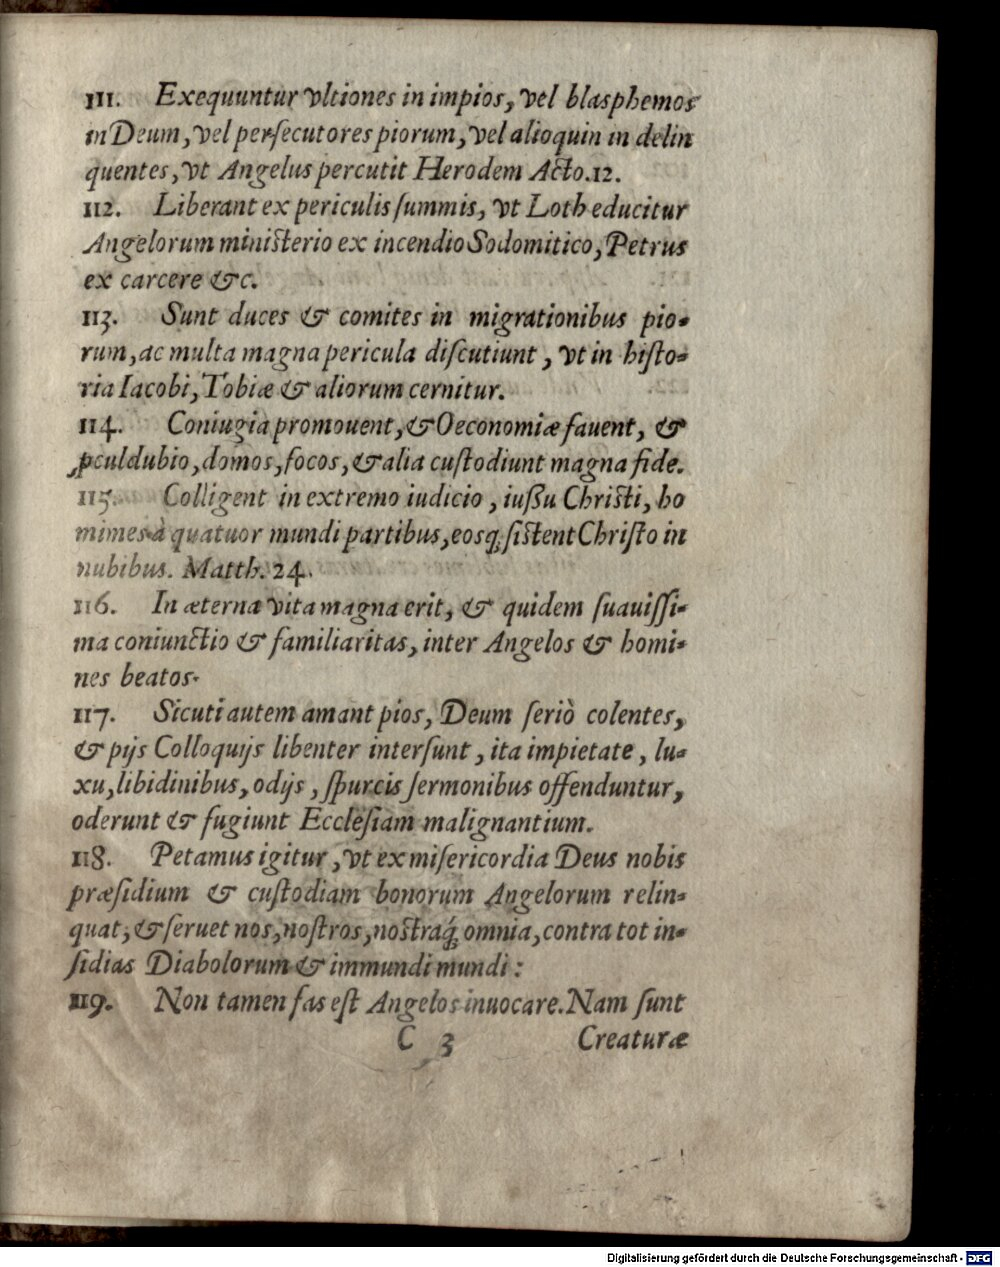 111. Exequuntur vltiones in impios, vel blasphemos
in Deum, vel persecutores piorum, vel alioquin in delin
quentes, vt Angelus percutit Herodem Acto. 12.
112. Liberant ex periculis summis, vt Loth educitur
Angelorum ministerio ex incendio Sodomitico, Petrus
ex carcere &c.
113. Sunt duces & comites in migrationibus pio-
rum, ac multa magna pericula discutiunt, vt in histo-
ria Iacobi, Tobiæ & aliorum cernitur.
114. Coniugia promouent, & Oeconomiæ fauent, &
ꝓculdubio, domos, focos, & alia custodiunt magna fide.
115. Colligent in extremo iudicio, iußu Christi, ho
mimes à quatuor mundi partibus, eosq́; sistent Christo in
nubibus. Matth. 24.
116. In æterna vita magna erit, & quidem suauissi-
ma coniunctio & familiaritas, inter Angelos & homi-
nes beatos.
117. Sicuti autem amant pios, Deum seriò colentes,
& pijs Colloquijs libenter intersunt, ita impietate, lu-
xu, libidinibus, odijs, spurcis sermonibus offenduntur,
oderunt & fugiunt Ecclesiam malignantium.
118. Petamus igitur, vt ex misericordia Deus nobis
præsidium & custodiam bonorum Angelorum relin-
quat, & seruet nos, nostros, nostraq́; omnia, contra tot in-
sidias Diabolorum & immundi mundi:
119. Non tamen fas est Angelos inuocare. Nam sunt
C 3 Creaturæ
Digitalisierung gefördert durch die Deutsche Forschungsgemeinschaft - DFG